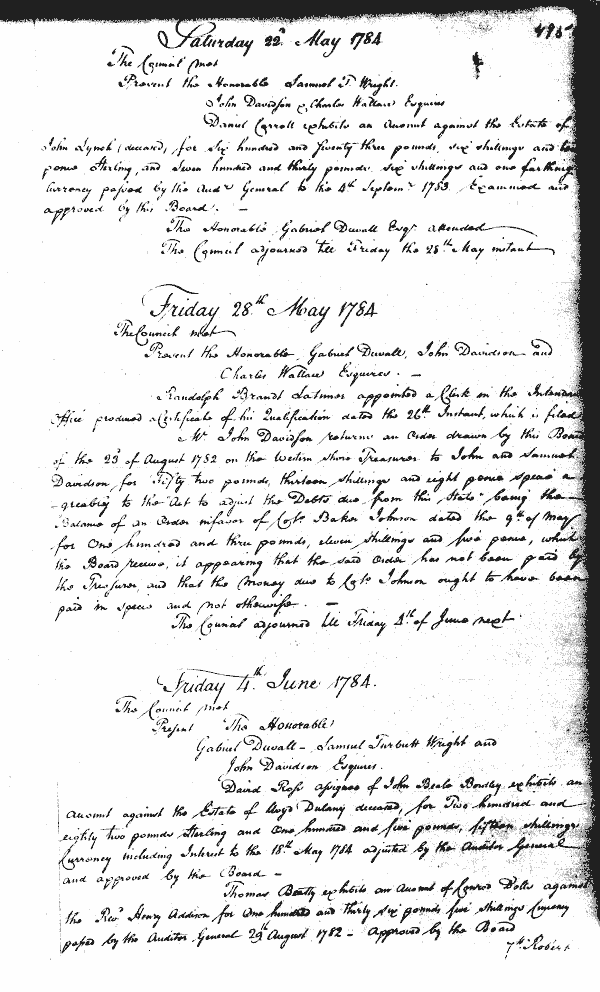 495
Saturday 22d May 1784
The Council met
Present the Honorable Samuel T. Wright.
John Davidson & Charles Wallace Esquires
Daniel Carroll exhibits an Account against the Estate of
John Lynch (deceased) for six hundred and seventy three pounds, six shillings and
pence Sterling, and Seven hundred and thirty pounds six shillings and one farthing
Currency passed by the Audr General to the 4th Septemr 1783 Examined and
approved by this Board. —
The Honorable Gabriel Duvall Esqr attended
The Council adjourned till Friday the 28th May instant
Friday 28th May 1784
The Council met
Present the Honorable Gabriel Duvall, John Davidson and
Charles Wallace Esquires. —
Randolph Brandt Latimer appointed a Clerk in the Intendants
Office produced a Certificate of his Qualification dated the 26th Instant, which is filed
Mr John Davidson returns an Order drawn by this Board
of the 23d of August 1782 on the Western Shore Treasurer to John and Samuel
Davidson for Fifty two pounds, thirteen shillings and eight pence specie a
-greeably to the Act to adjust the Debts due from this State" being the
Balance of an Order in favor of Capt. Baker Johnson dated the 9th of May
for One hundred and three pounds, eleven shillings and five pence, which
the Board receive, it appearing that the said Order has not been paid by
the Treasurer, and that the Money due to Capt. Johnson ought to have been
paid in specie and not otherwise. —
The Council adjourned till Friday 4th of June next
Friday 4th June 1784.
The Council met
Present The Honorable
Gabriel Duvall – Samuel Turbutt Wright and
John Davidson Esquires.
David Ross assignee of John Beale Bordley exhibits an
Account against the Estate of Lloyd Dulany deceased, for Two hundred and
eighty two pounds Sterling and One hundred and five pounds, fifteen shillings
Currency including Interest to the 18th May 1784 adjusted by the Auditor General
and approved by the Board –
Thomas Beatty exhibits an Account of Conrod Dolls against
the Revd Henry Addison for One hundred and thirty six pounds five shillings Currency
passed by the Auditor General 29th August 1782 – Approved by the Board
7th Robert